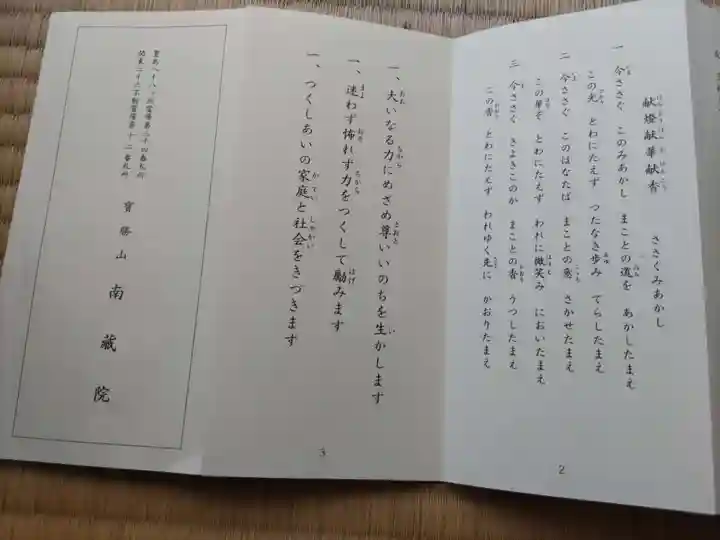 献燈献華献香
ささくみあかし
一 今ささぐ このみあかし まことの道を あかしたまえ
この光 とわにたえず つたなき歩み てらしたまえ
二 今ささぐ このはなたば まことの意 さかせたまえ
この華ぞ とわにたえず われに微笑み においたまえ
三 今ささぐ きよきこのか まことの香 うつしたまえ
この香 とわにたえず われゆく先に かおりたまえ
2
一、大いなる力にめざめ尊いいのちを生かします
一、迷わず怖れず力をつくして励みます
一、つくしあいの家庭と社会をきづきます
3
豊島八十八ヶ所霊場第二十四番札所
三十六不動霊場第十二番札所
寳勝山 南蔵院